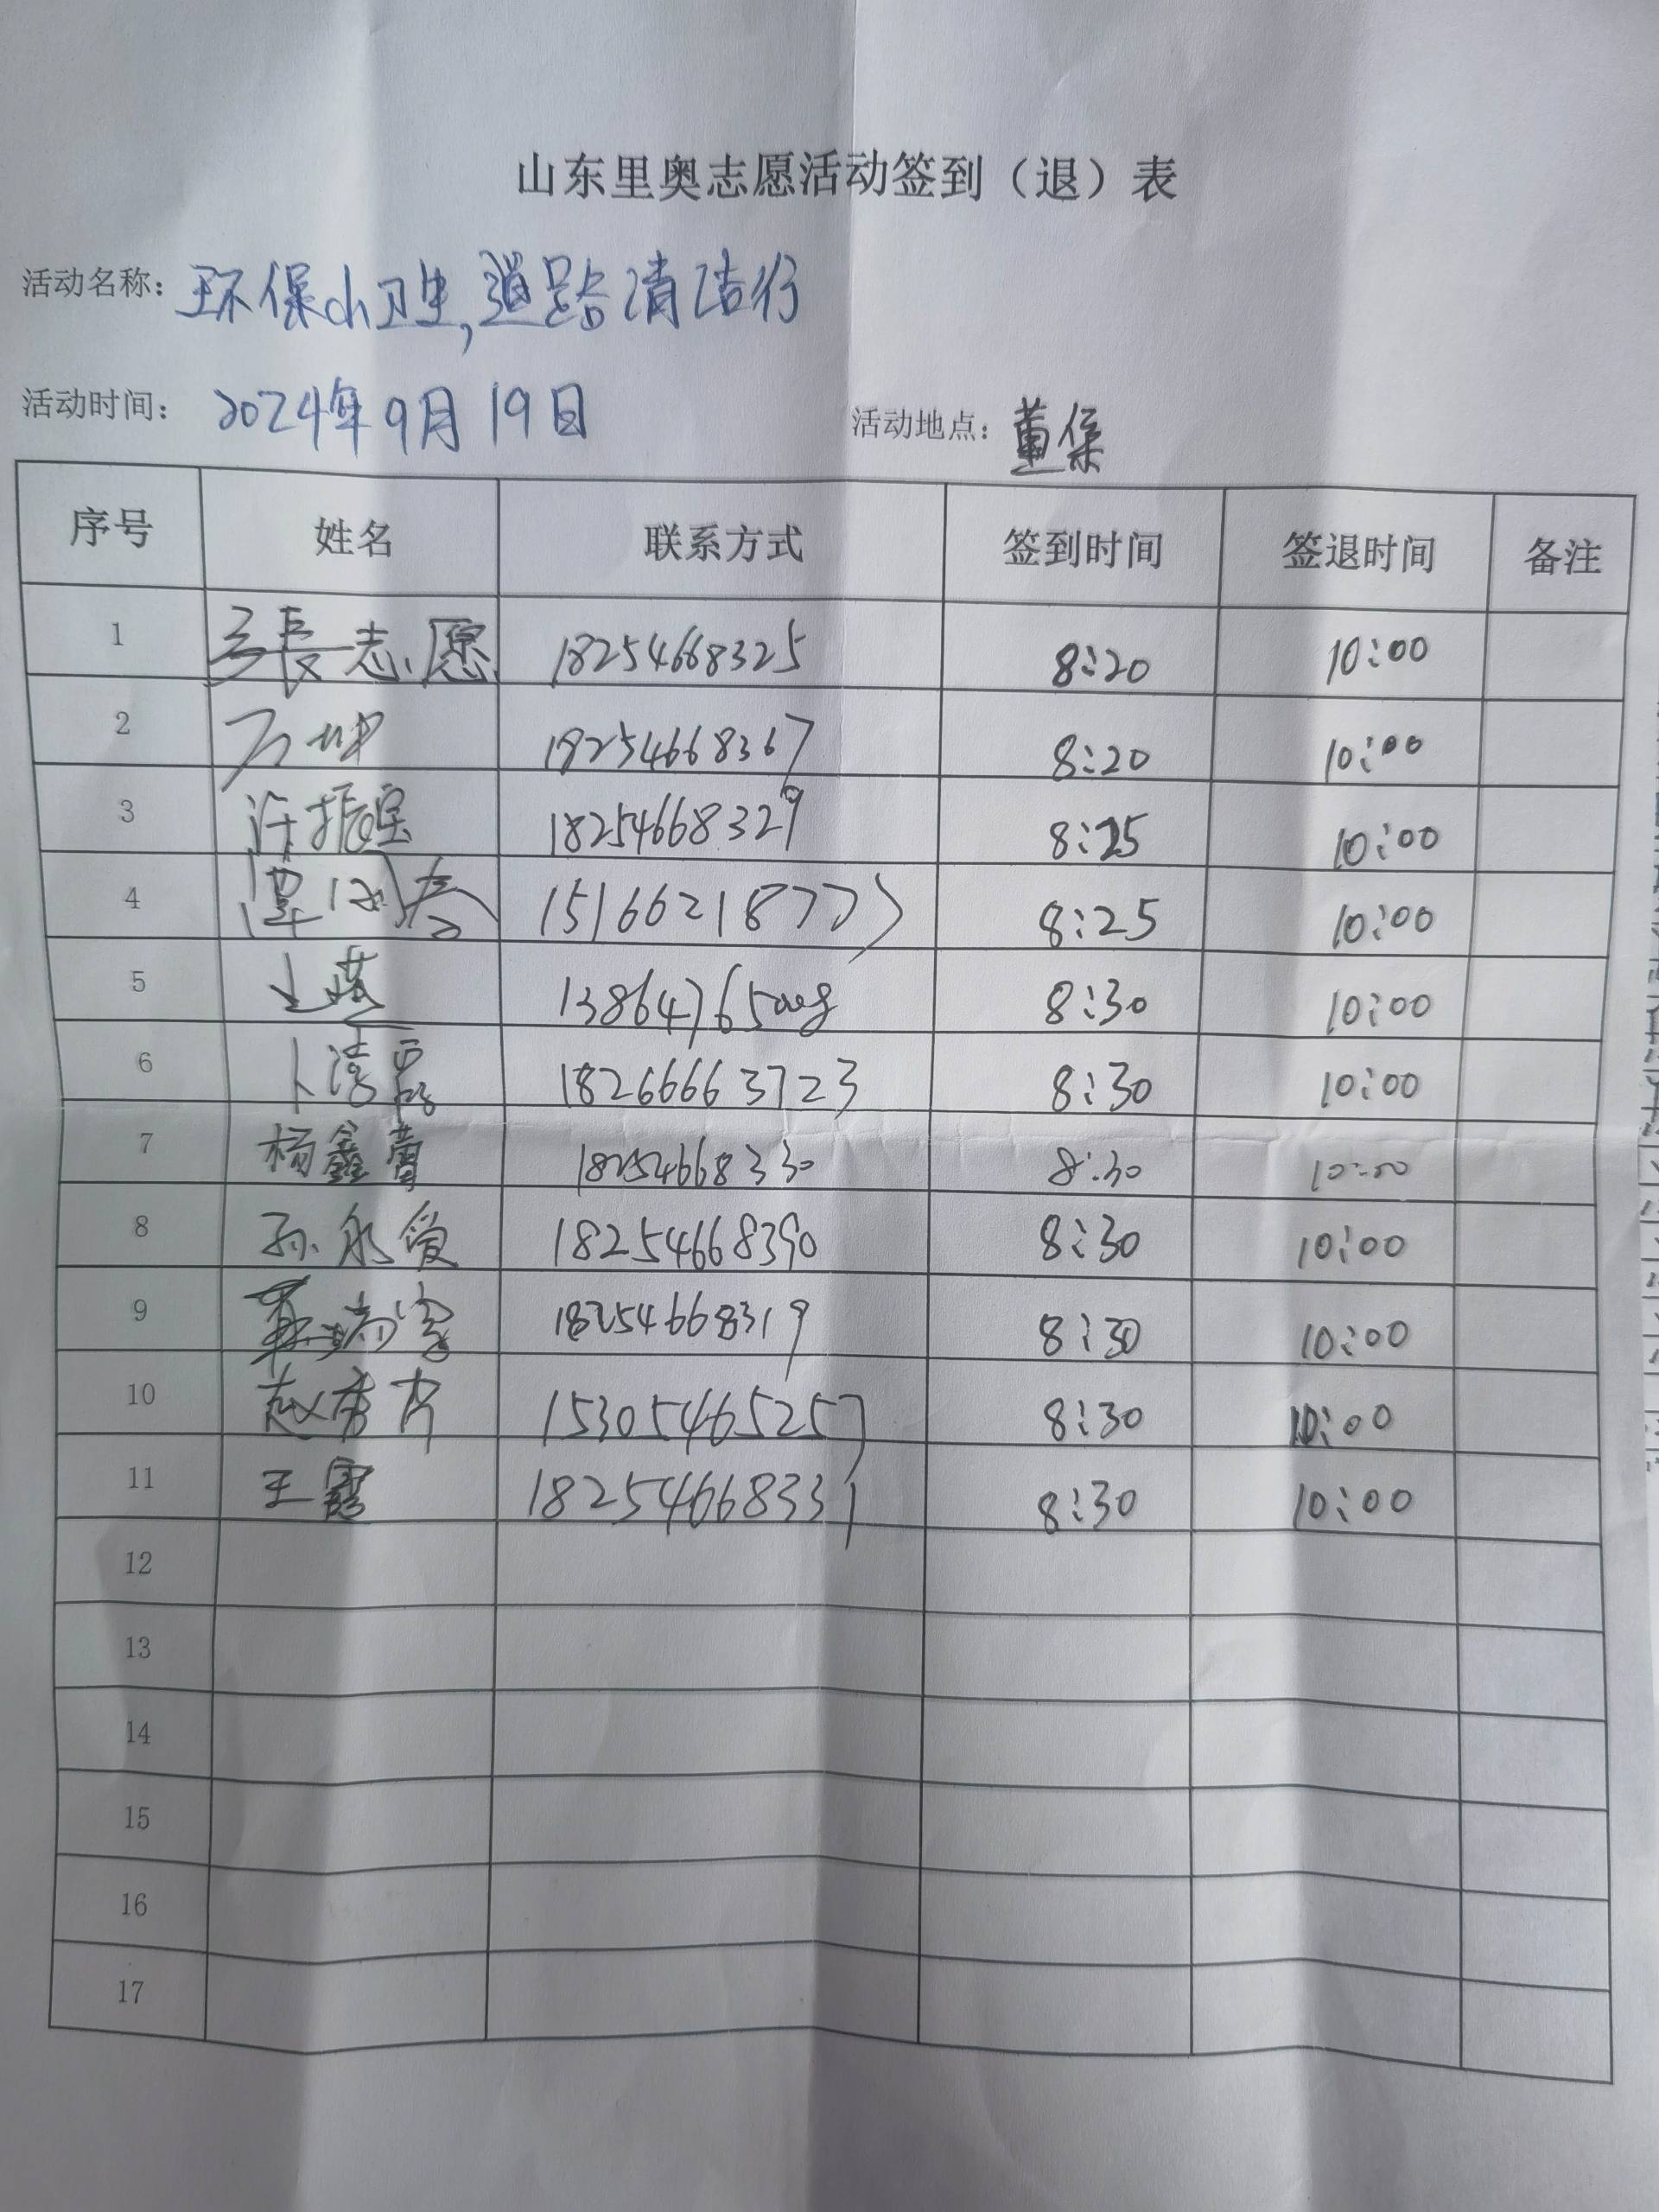 山东里奥志愿活动签到（退）表
活动名称：环保小卫生,道路清洁行
活动时间：2024年9月19日 活动地点：董集
序号 姓名 联系方式 签到时间 签退时间 备注
1 志愿 18254668325 8:20 10:00
2 18254668367 8:20 10:00
3 许振宝 18254668329 8:25 10:00
4 8:25 10:00
5 8:30 10:00
6 卜 18266663723 8:30 10:00
7 杨鑫 18254668330 8:30 10:00
8 孙永爱 18254668390 8:30 10:00
9 18254668319 8:30 10:00
10 赵秀芹 15305465257 8:30 10:00
11 王霞 18254668331 8:30 10:00
12
13
14
15
16
17